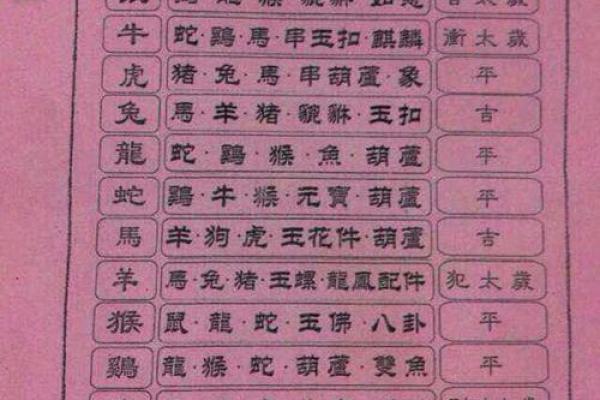 龍 猴 貔貅 如意 合太歲
牛 蛇·鷄·馬·串玉扣·麒麟 衝太歲
虎 猪·兔·馬·串葫蘆·象 平
兔 馬·羊·猪·貔貅·玉扣 吉
龍 蛇·鷄·猴·魚·葫蘆 平
蛇 鷄·牛·猴·元寶·葫蘆 平
馬 羊·狗·虎·玉花件·葫蘆 吉
羊 馬·兔·猪·玉螺·龍鳳配件 犯太歲
猴 鼠·龍·蛇·玉佛·八卦 平
鷄 龍·猴·蛇·葫蘆·雙魚 平